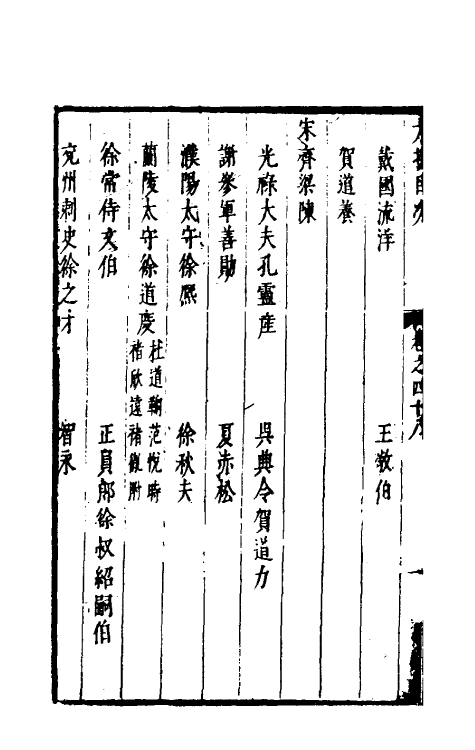 卷之四十八
戴國流洋 王敬伯
賀道養
宋齊梁陳
光祿大夫孔靈產 吳興令賀道力
謝參軍善勛 夏赤松
濮陽太守徐熙 徐秋夫
蘭陵太守徐道度 杜道鞠 范悅時
褚欣遠 褚繼
徐常侍文伯 正員郎徐叔紹嗣伯
兗州刺史徐之才 智永